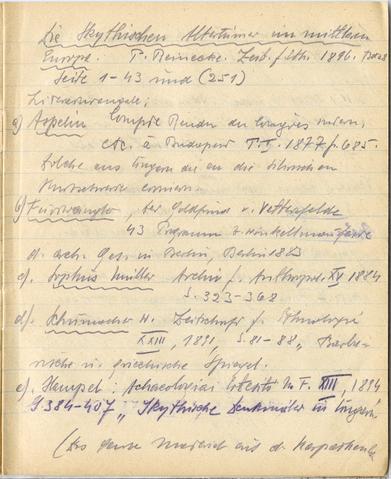 Die Skythischen Altertümer im mittleren
Europa. P. Reinecke. Zeit. f. Ethn. 1896. Bd 28
Seite 1-43 und (251)
Literaturangabe:
a) Aspelin Compte Rendu du Congrès intern.
etc. à Budapest T. I. 1877 p. 685.
Solche aus Ungarn die an die
b) Furtwängler, der Goldfund v. Vettersfelde
43 Programm z. Winckelmannsfeste
d. arch. Ges. in Berlin, Berlin 1883
c). Sophus Müller Archiv f. Anthropol. XV 1884
S. 323-368
d). Schumacher K. Zeitschrift f. Ethnologie
XXIII, 1891, S. 81-88, "Barba-
rische u. griechische Spiegel.
e). Hampel: Archaeologiai Értesitö N. F. XIII, 1894
S 384-407 "Skythische Denkmäler in Ungarn
(Das ganze aus d.